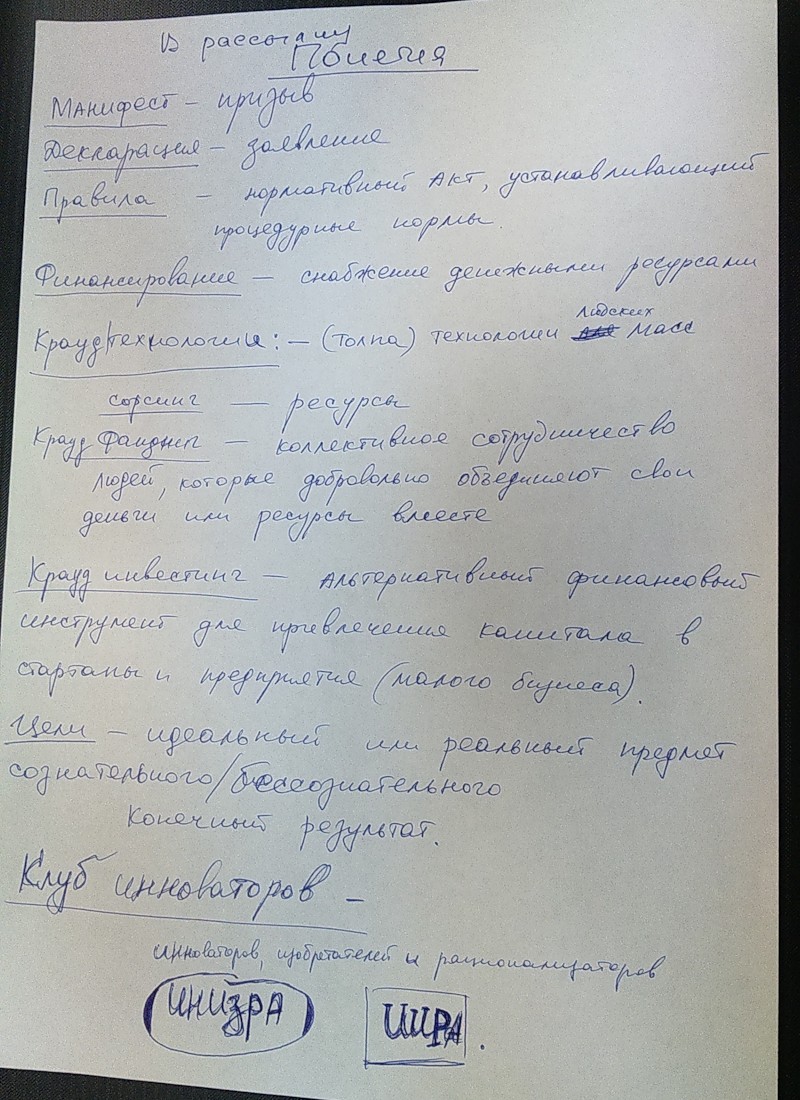 В рассылку
Понятия
Манифест – призыв
Декларация – заявление
Правила – нормативный Акт, устанавливающий
процедурные нормы.
Финансирование – снабжение денежными ресурсами
Людских
Крауд|технологии: – (толпа) технологии масс
сорсинг — ресурсы
Крауд Фандинг – коллективное сотрудничество
людей, которые добровольно объединяют свои
деньги или ресурсы вместе
Крауд инвестинг – альтернативный финансовый
инструмент для привлечения капитала в
стартапы и предприятия (малого бизнеса).
Цели – идеальный или реальный предмет
сознательного/бессознательного
Конечный результат.
Клуб инноваторов –
инноваторов, изобретателей и рационализаторов
ИНИЗРА
ИИРА.